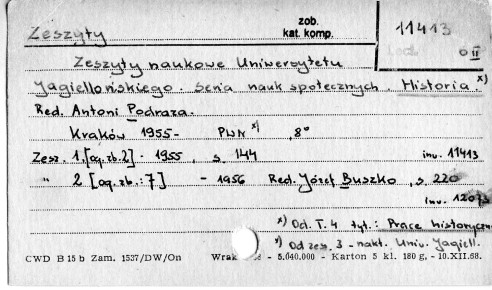 Zeszyty
zob.
kat. komp.
11413
o II
Zeszyty naukowe Uniwersytetu
Jagiellońskiego. Seria nauk społecznych. Historia. x)
Red. Antoni Podraza.
Kraków 1955- PWN x), 8°
Zesz. 1, [og. zb. 2] - 1955, s. 144 inw. 11413
" 2 [og. zb.: 7] - 1956 Red. Józef Buszko, s. 220
inw. 12073
x) Od T. 4 tyt.: Prace historyczn
x) Od zesz. 3 - nakł. Uniw. Jagiell.
CWD B 15 b Zam. 1537/DW/On Wrak - 5.040.000 - Karton 5 kl. 180 g, - 10.XII.68.